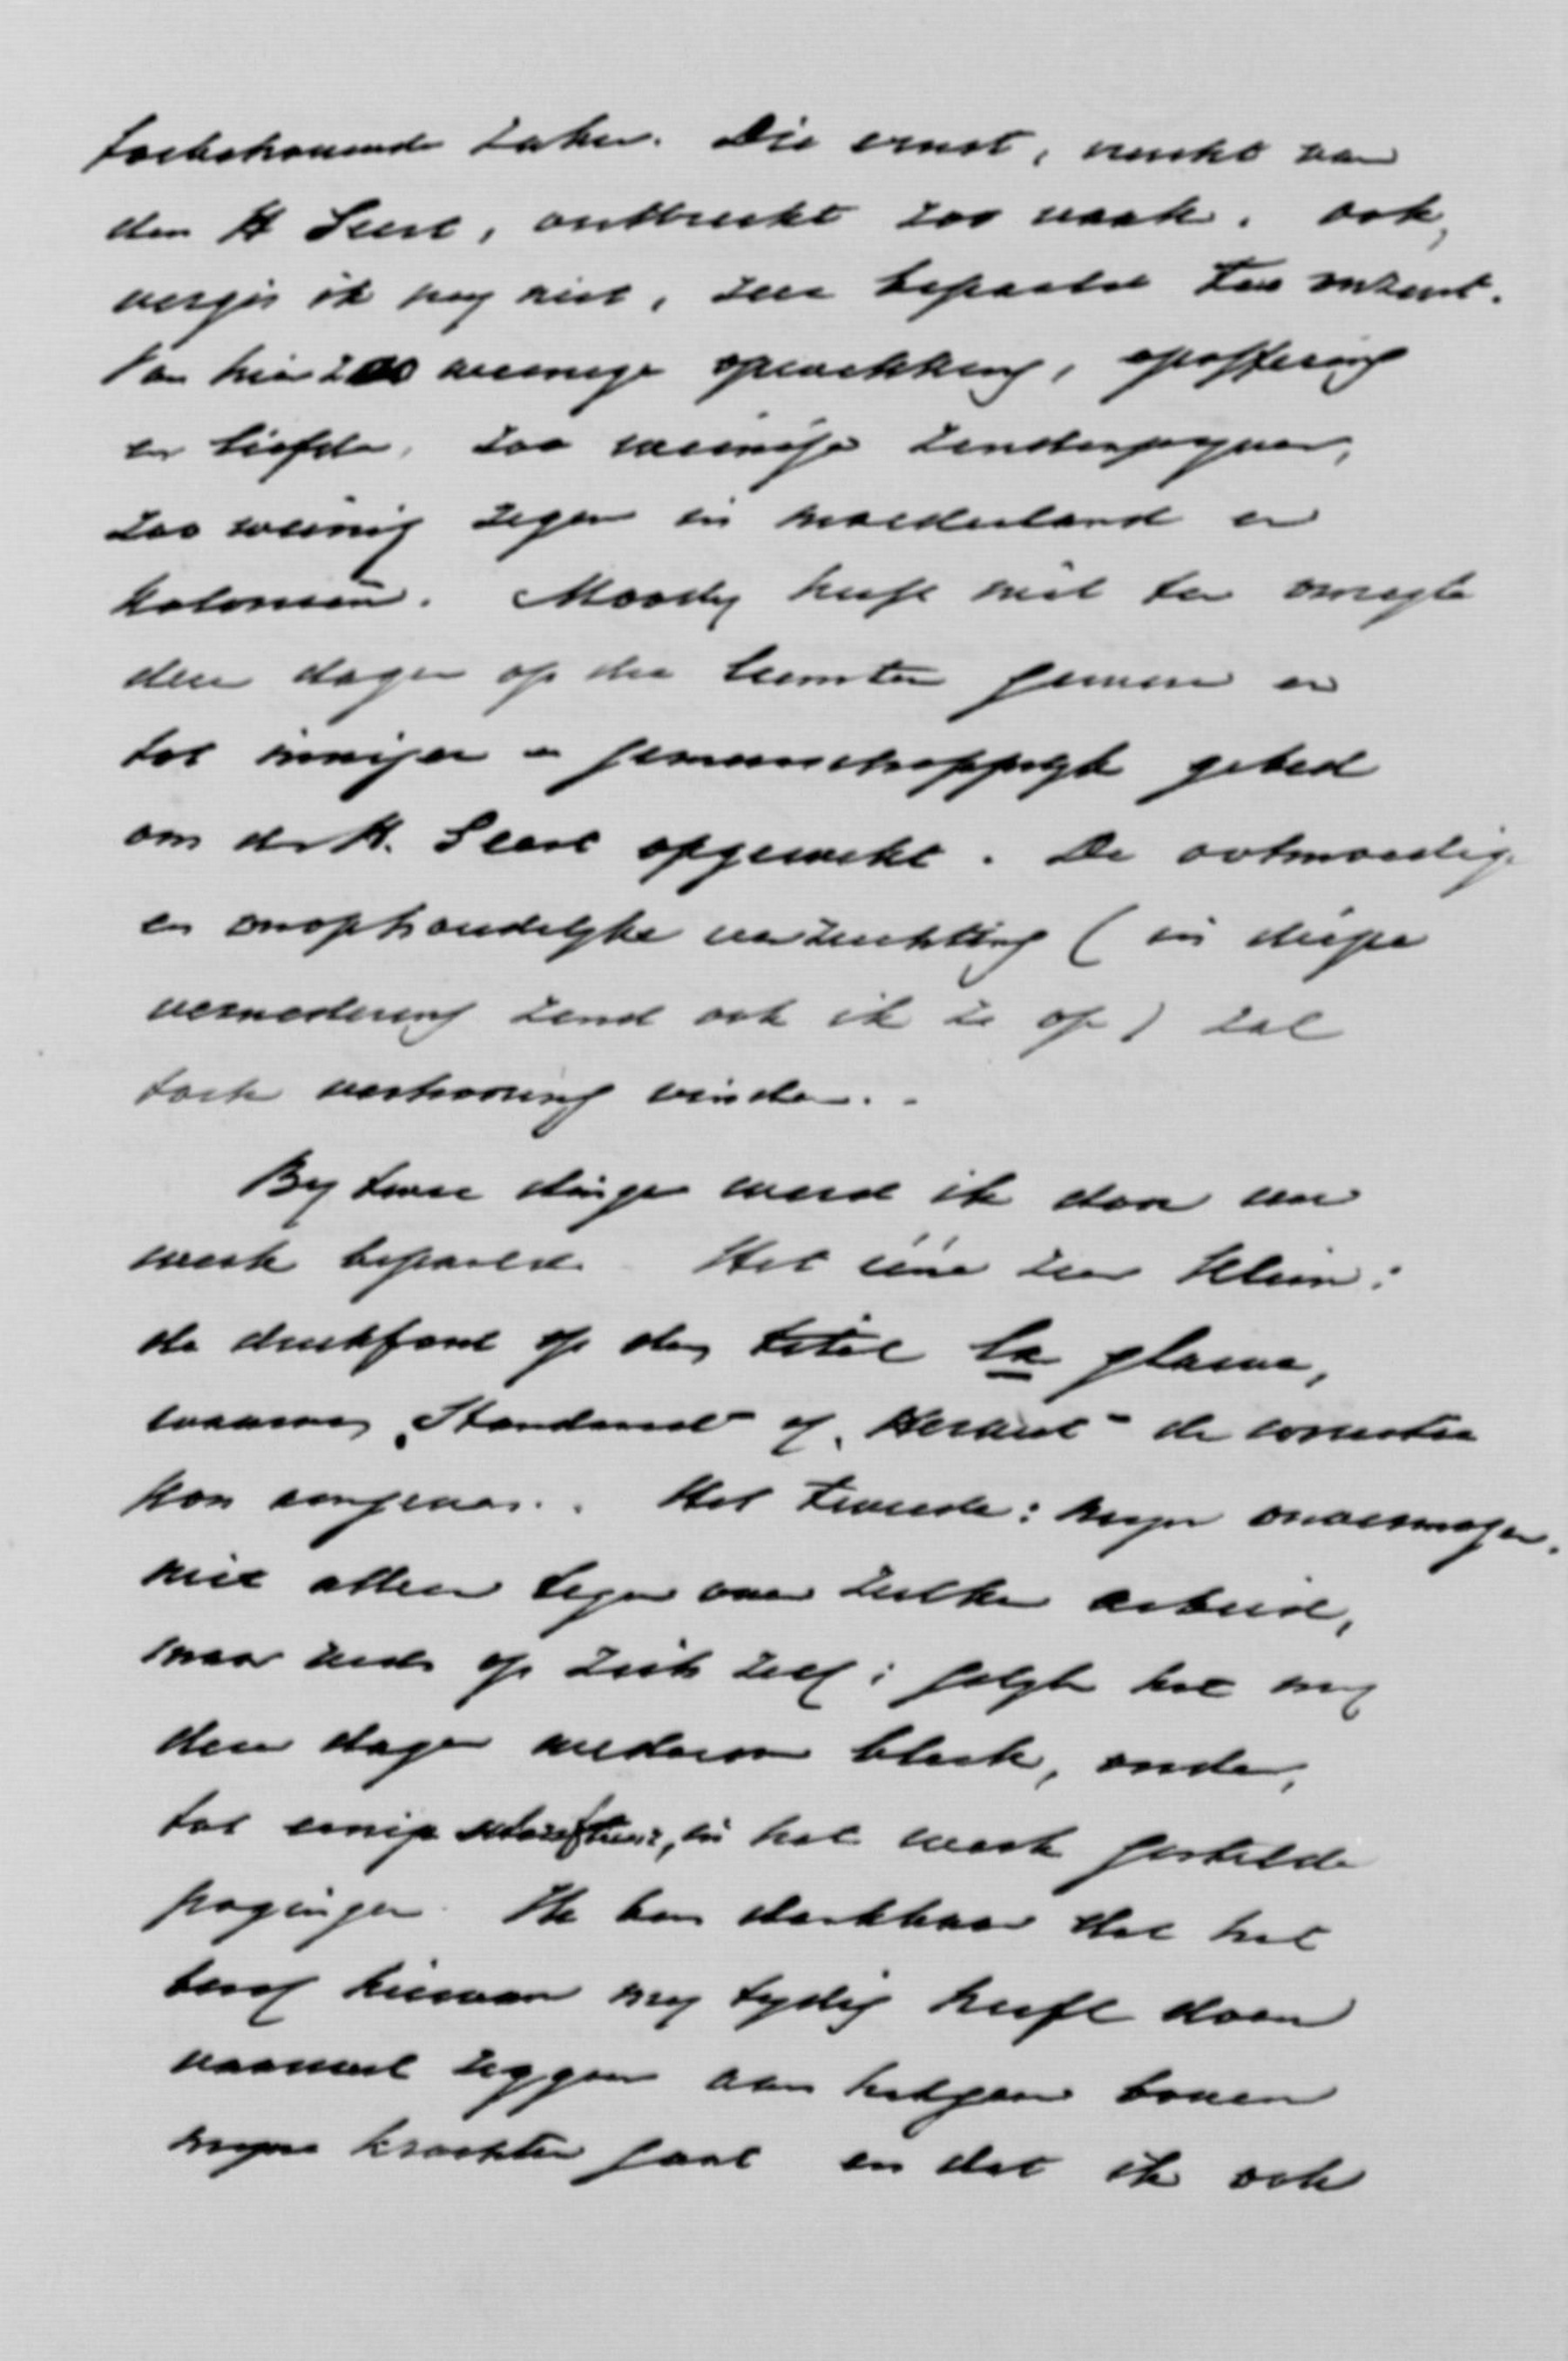 toebehoorende zaken. Die ernst, vrucht van
den H Geest, ontbreekt zoo vaak. ook,
vergis ik mij niet, zeer bepaald ten onzent.
Van hier zoo weinige opwekking, opoffering
en liefde, zoo weinige zendingsijver,
zoo weinig zegen in moederland en
koloniën. Moody heeft niet ten onregte
dezer dagen op die leemten gewezen en
tot inniger en gemeenschappelijk gebed
om den H. Geest opgewekt. De ootmoedige
en onophoudelijke verzuchting (in diepe
vernedering zend ook ik ze op) zal
toch verhooring vinden.
By twee dingen werd ik door uw
werk bepaald. Het ééne zeer klein:
de drukfout op den titel la glaive,
waarom „Standaard" of „Heraut" de correctie
kon aangeven. Het tweede: mijn onvermogen.
niet alleen tegen over zulken arbeid,
maar reeds op zich zelf; gelijk het mij
dezer dagen wederom bleek, onder,
tot eenige in het werk gestelde
pogingen. Ik ben dankbaar dat het
besef hiervan mij tydig heeft doen
vaarwel zeggen aan hetgeen boven
mijne krachten gaat en dat ik ook